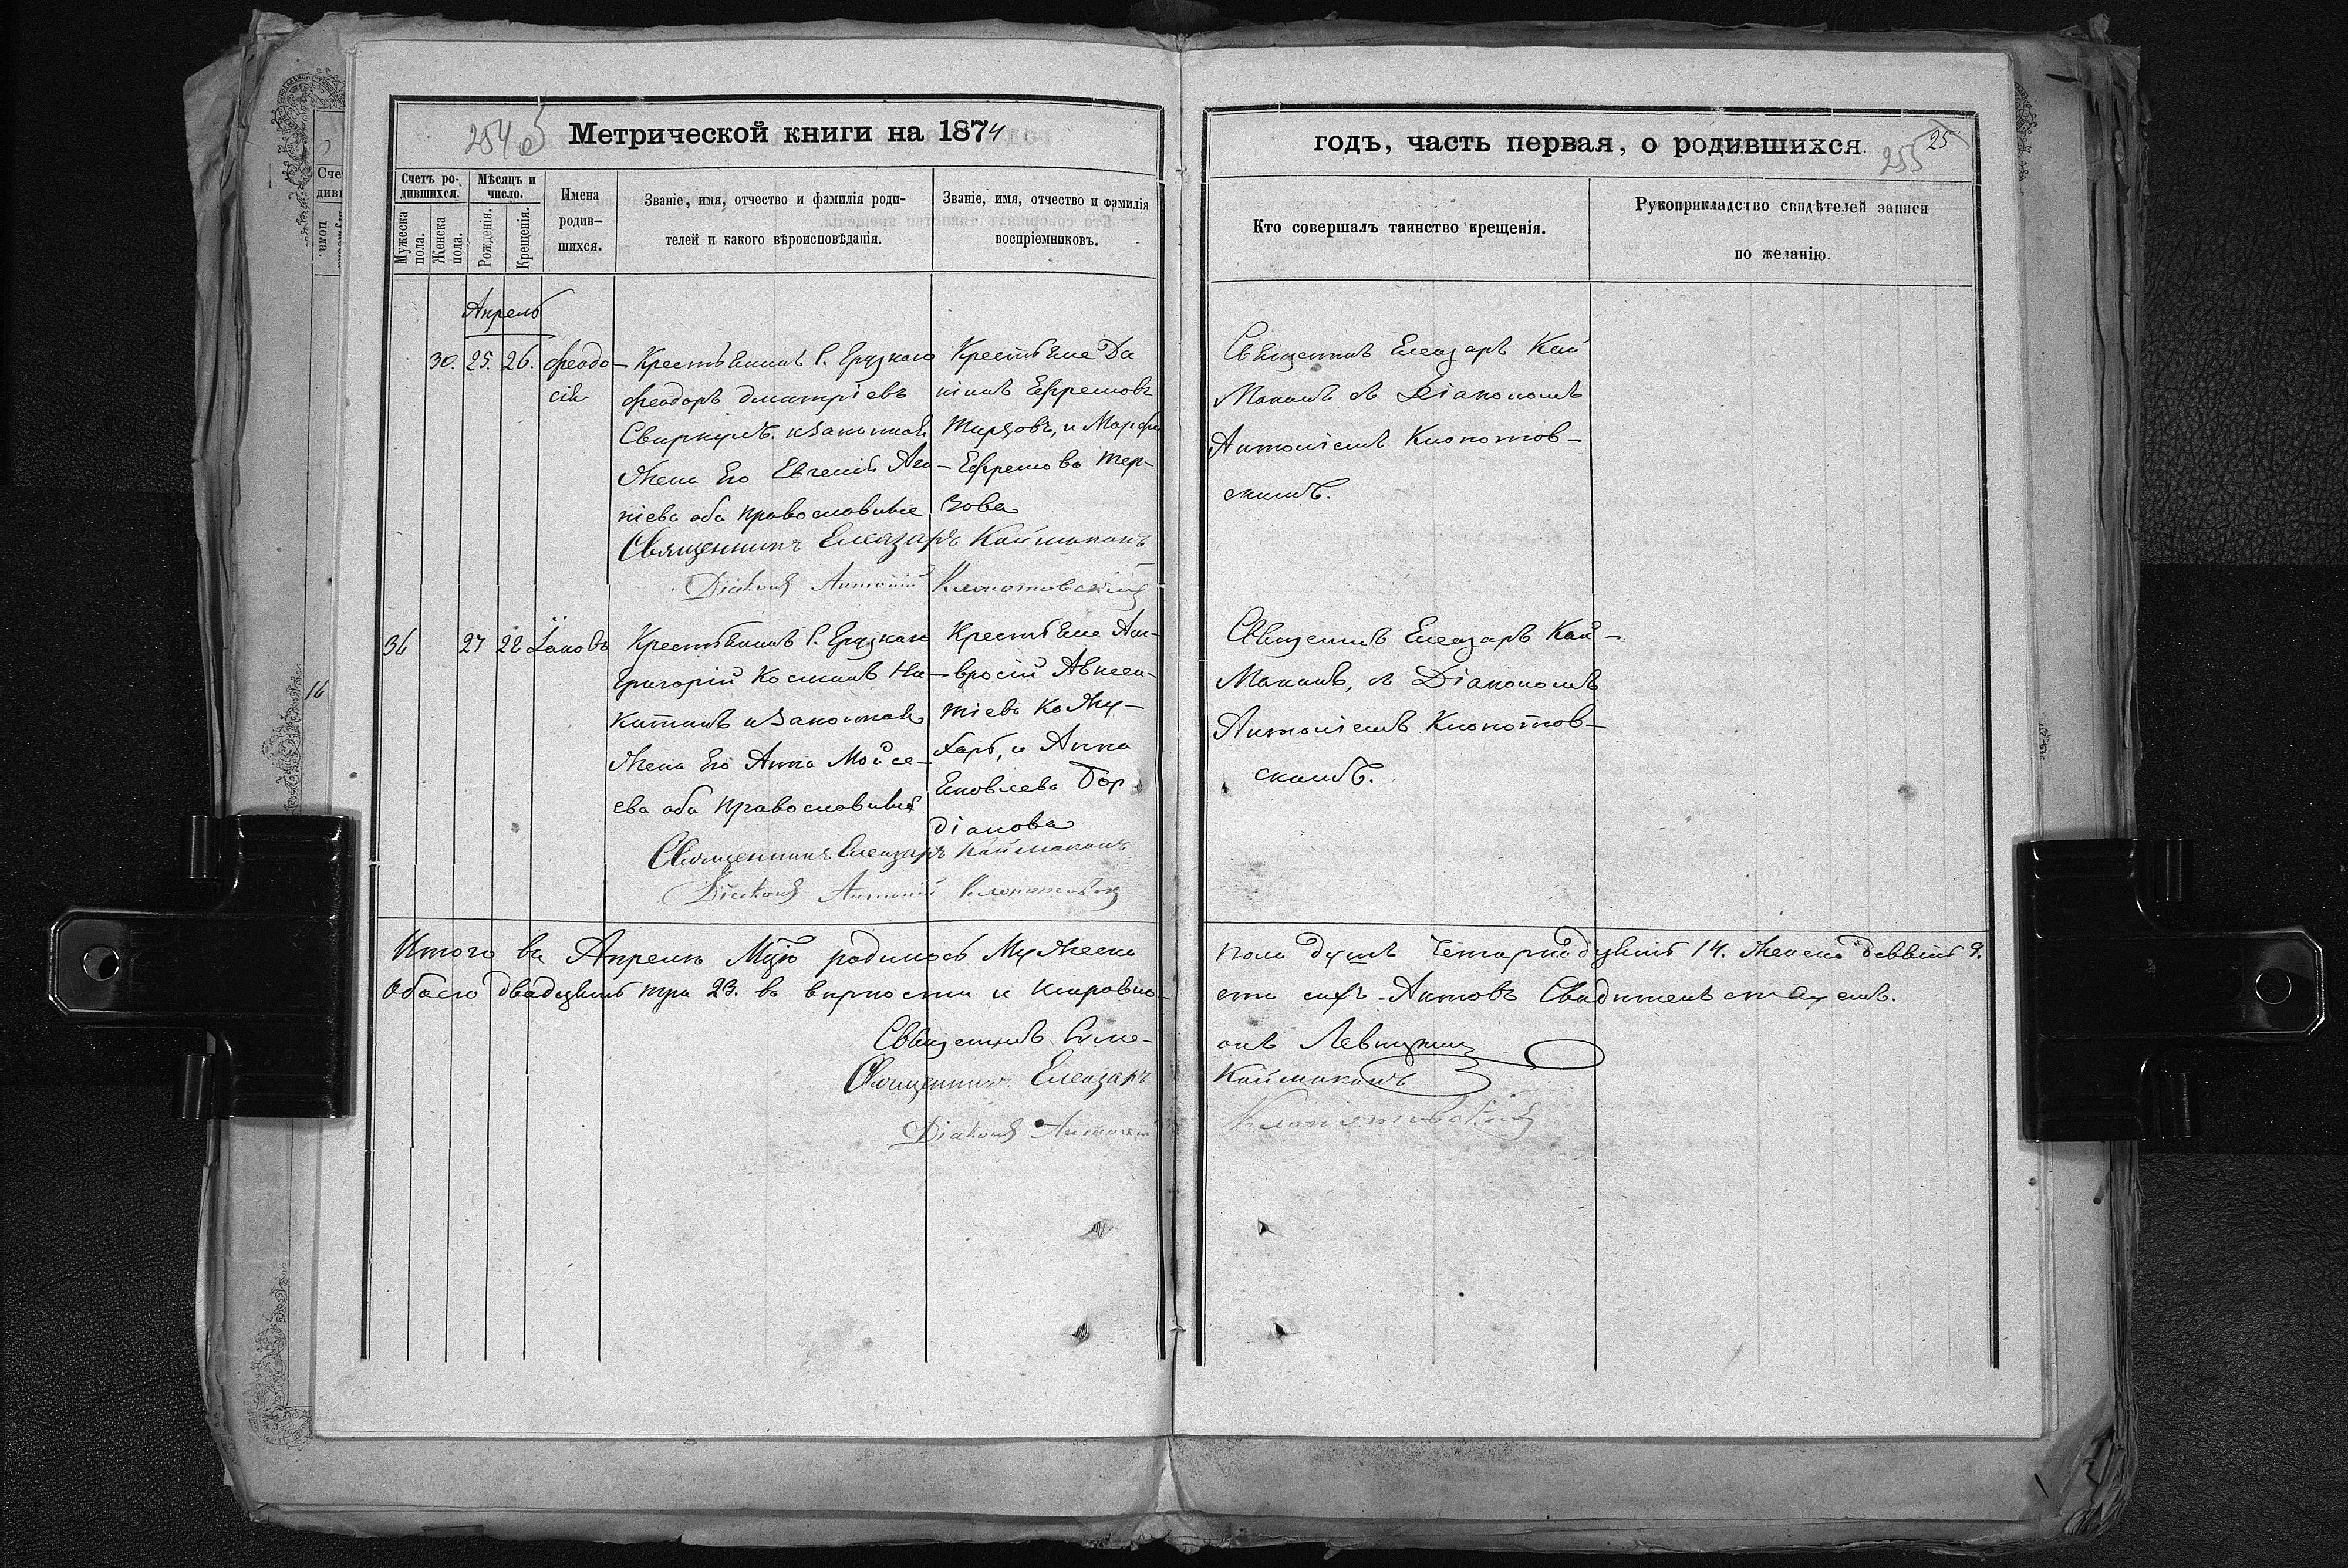 254об
Метрической книги на 1874
Счетъ ро-
дившихся.
Мѣсяцъ и
число.
Мужеска
пола.
Женска
пола.
Рожденія.
Крещенія.
Имена
родив-
шихся.
Званіе, имя, отчество и фамилія роди-
телей и какого вѣроисповѣданія.
Званіе, имя, отчество и фамилія
воспріемниковъ.
Апрель
30. 25. 26.
Феодо-
сія
Крестьянинъ С.
Феодоръ Дмитріевъ
законная
Жена Его Евгенія
оба православные
Священникъ Елеазаръ Каймаканъ
Діаконъ Антоній Клопотовскій
Крестьяне Да
ніилъ Ефремовъ
и Марфа
Ефремова Тер-
зова
27 Іаковъ
Крестьянинъ С.
Григорій Косминъ Ни-
китинъ и законная
Жена Его Анна Мойсе-
ева оба православные
Священникъ Елеазаръ Каймаканъ
Діаконъ Антоній
Крестьяне Ам-
вросій Авксен-
тіевъ Кожу-
харъ, и Анна
Яковлева Бор-
діанова
Итого въ Апреле родилось Мужеска
Обоего двадцать три 23. въ верности и
Священникъ Симе-
Священникъ Елеазаръ
Діаконъ Антоній
годъ, часть первая, о родившихся.
255
25
Кто совершалъ таинство крещенія.
Рукоприкладство свидѣтелей записи
по желанію.
Священникъ Елеазаръ Кай
Маканъ съ Діакономъ
Антоніемъ Клопотов-
скимъ.
Священникъ Елеазаръ Кай-
Маканъ, съ Діакономъ
Антоніемъ Клопотов-
скимъ.
пола душъ Четырнадцать 14. Женска девять 9.
сти сихъ Актовъ Свидительствуемъ.
онъ Левицкій
Каймаканъ
Клопотовскій
16